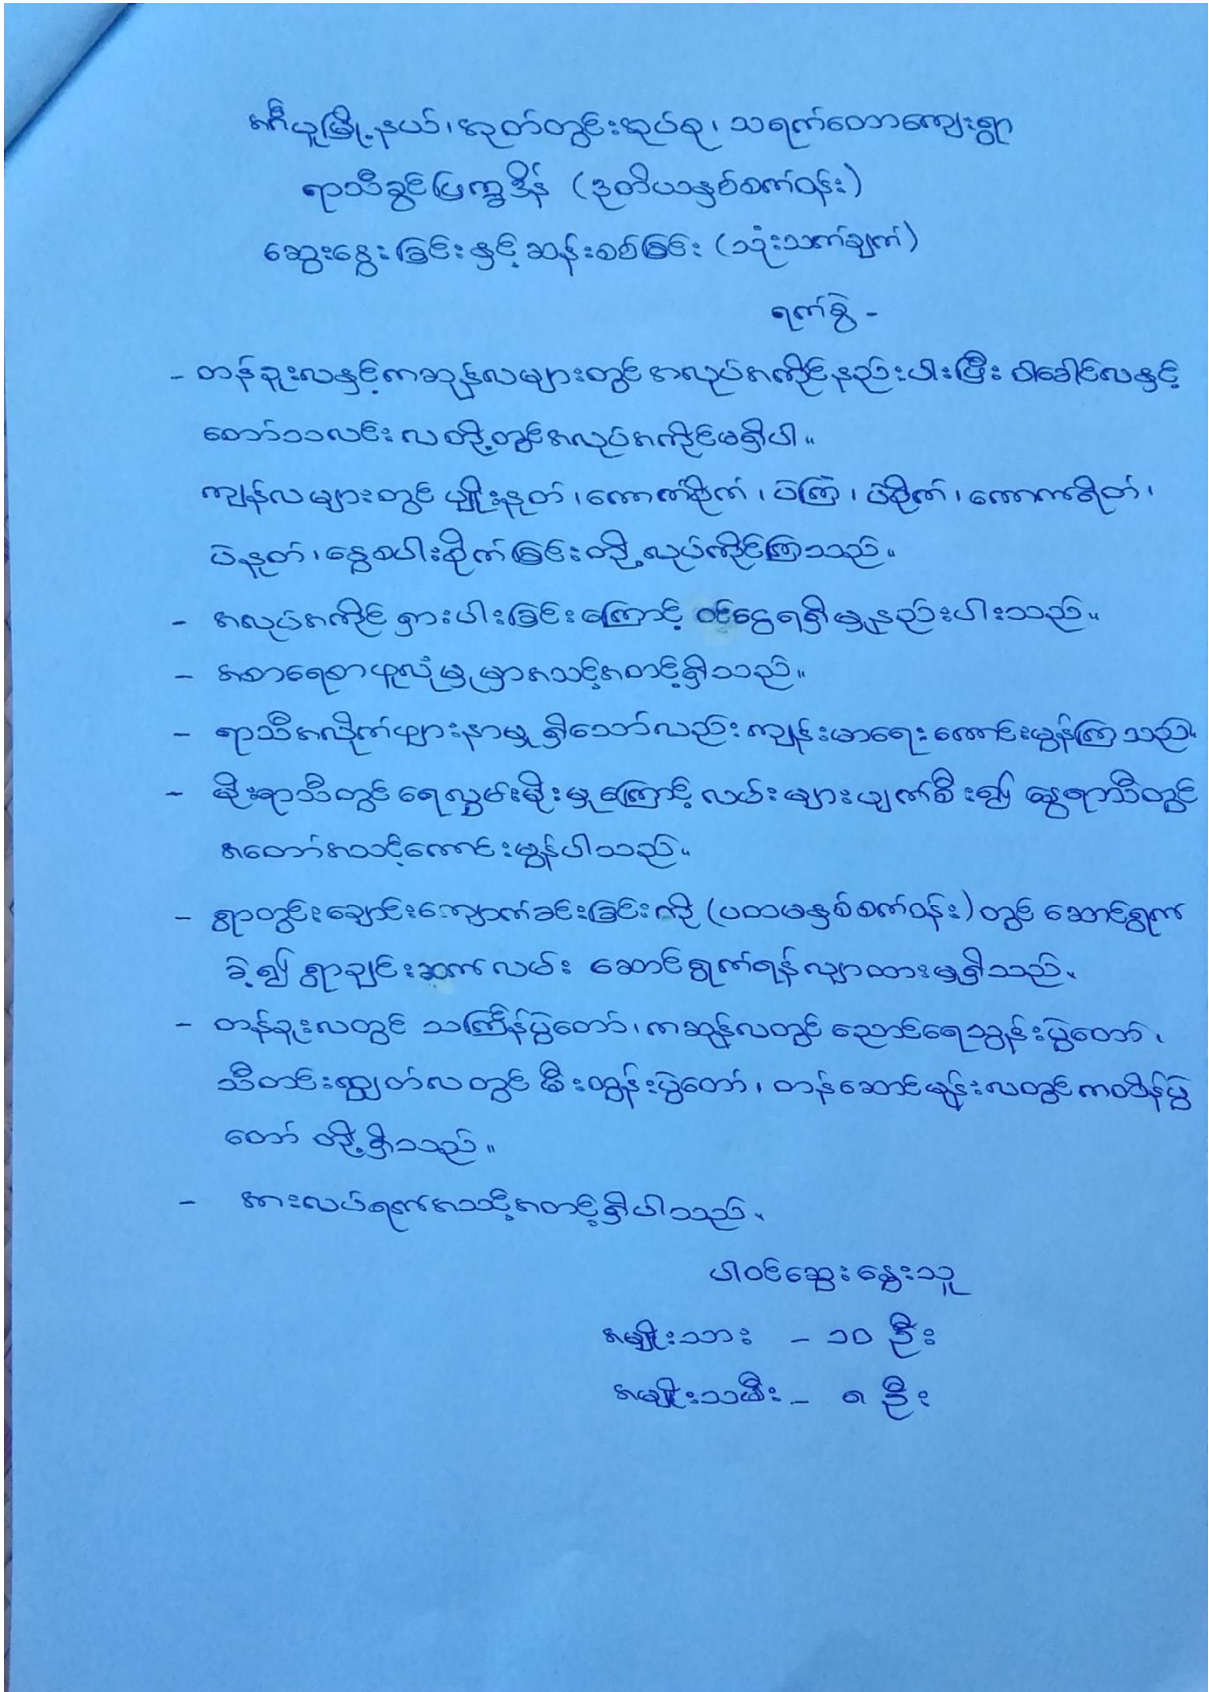 အင်္ဂပူမြို့နယ်၊ အုတ်တွင်းအုပ်စု၊ သရက်တောကျေးရွာ
ရာသီခွင်ပြက္ခဒိန် (ဒုတိယနှစ်စက်ဝန်း)
ဆွေးနွေးခြင်းနှင့် ဆန်းစစ်ခြင်း (သုံးသက်ချက်)
ရက်စွဲ -
- တန်ခူးလနှင့်ကဆုန်လများတွင် အလုပ်အကိုင်နည်းပါးပြီး ဝါခေါင်လနှင့်
တော်သလင်းလတို့တွင်အလုပ်အကိုင်မရှိပါ။
ကျန်လများတွင် ပျိုးနုတ်၊ ကောက်စိုက်၊ ပဲကြဲ၊ ပဲစိုက်၊ ကောက်ရိတ်၊
ပဲနုတ်၊ နွေစပါးစိုက်ခြင်းတို့ လုပ်ကိုင်ကြသည်။
- အလုပ်အကိုင် ရှားပါးခြင်းကြောင့် ဝင်ငွေရရှိမှုနည်းပါးသည်။
- အစာရေစာဖူလုံမှုမှာအသင့်အတင့်ရှိသည်။
- ရာသီအလိုက်ဖျားနာမှု ရှိသော်လည်း ကျန်းမာရေးကောင်းမွန်ကြသည်။
- မိုးရာသီတွင် ရေလွှမ်းမိုးမှုကြောင့် လမ်းများပျက်စီး၍ နွေရာသီတွင်
အတော်အသင့်ကောင်းမွန်ပါသည်။
- ရွာတွင်းချောင်းကျောက်ခင်းခြင်းကို (ပထမနှစ်စက်ဝန်း) တွင် ဆောင်ရွက်
ခဲ့၍ ရွာချင်းဆက်လမ်း ဆောင်ရွက်ရန်လျာထားမှုရှိသည်။
- တန်ခူးလတွင် သင်္ကြန်ပွဲတော်၊ ကဆုန်လတွင် ညောင်ရေသွန်းပွဲတော်၊
သီတင်းကျွတ်လတွင် မီးထွန်းပွဲတော်၊ တန်ဆောင်မုန်းလတွင်ကထိန်ပွဲ
တော် တို့ရှိသည်။
- အားလပ်ရက်အသင့်အတင့်ရှိပါသည်။
ပါဝင်ဆွေးနွေးသူ
အမျိုးသား - ၁၀ ဦး
အမျိုးသမီး - ၈ ဦး